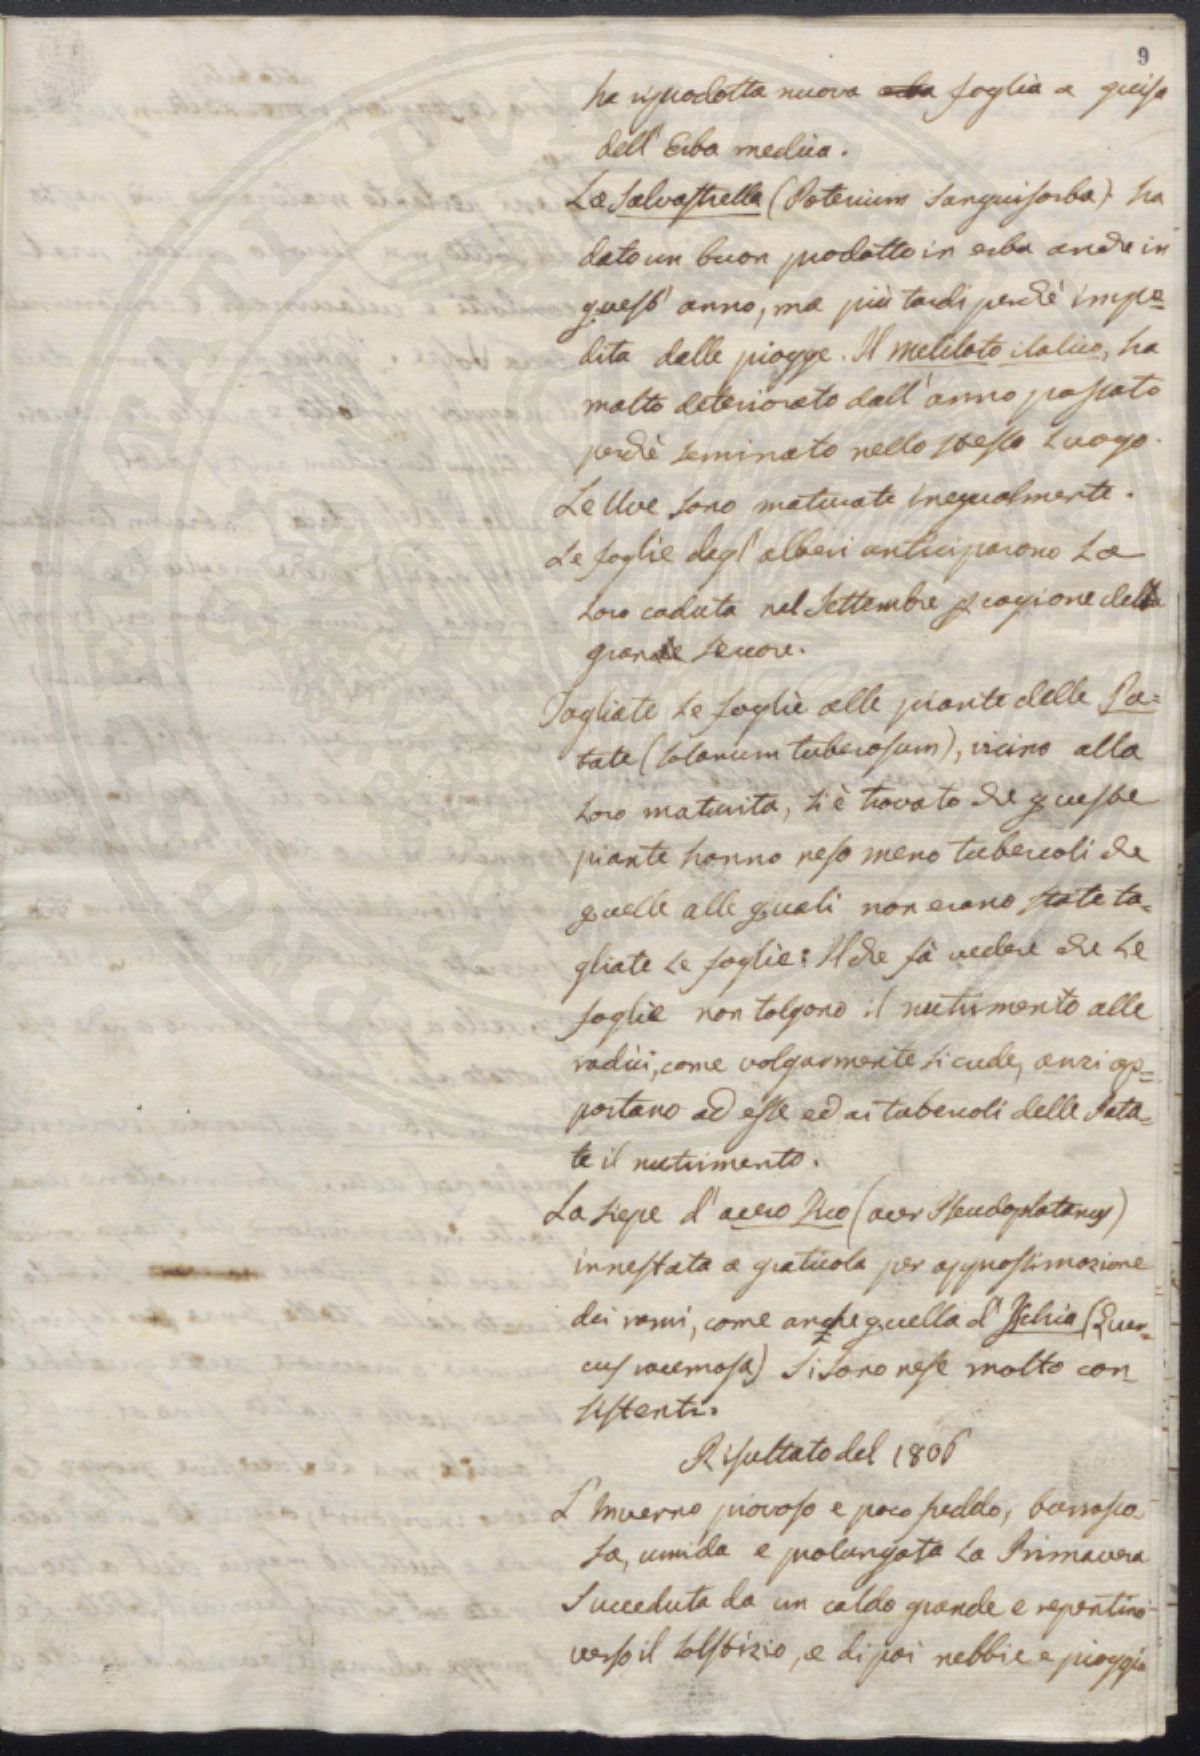 9
ha riprodotta nuova erba foglia a guisa
dell' Erba medica.
La Salvastrella (Poterium Sanguisorba) ha
dato un buon prodotto in erba anche in
quest' anno, ma più tardi perchè impe=
dita dalle piogge. Il Meliloto italico, ha
molto deteriorato dall' anno passato
perchè seminato nello stesso Luogo.
Le Uve sono maturate inegualmente.
Le foglie degl' alberi anticiparono La
Loro caduta nel Settembre p cagione della
grande seccore.
Tagliate Le foglie alle piante delle Pa=
tate (Solanum tuberosum), vicino alla
Loro maturita, si è trovato che queste
piante hanno reso meno tubercoli che
quelle alle quali non erano state ta=
gliate Le foglie: Il che fà vedere che Le
foglie non tolgono il nutrimento alle
radici, come volgarmente si crede, anzi ap=
portano ad esse ed ai tubercoli delle Pata=
te il nutrimento.
La siepe d' acero Fico (acer Pseudoplatanus)
innestata a graticola per approssimazione
dei rami, come anche quella d' Ischia (Quer=
cus racemosa) si sono rese molto con=
sistenti.
Risultato del 1806
L' Inverno piovoso e poco freddo, burrasco
sa, umida e prolungata La Primavera
Succeduta da un caldo grande e repentino
verso il solstizio, e di poi nebbie e pioggia
PRO PVBLICA